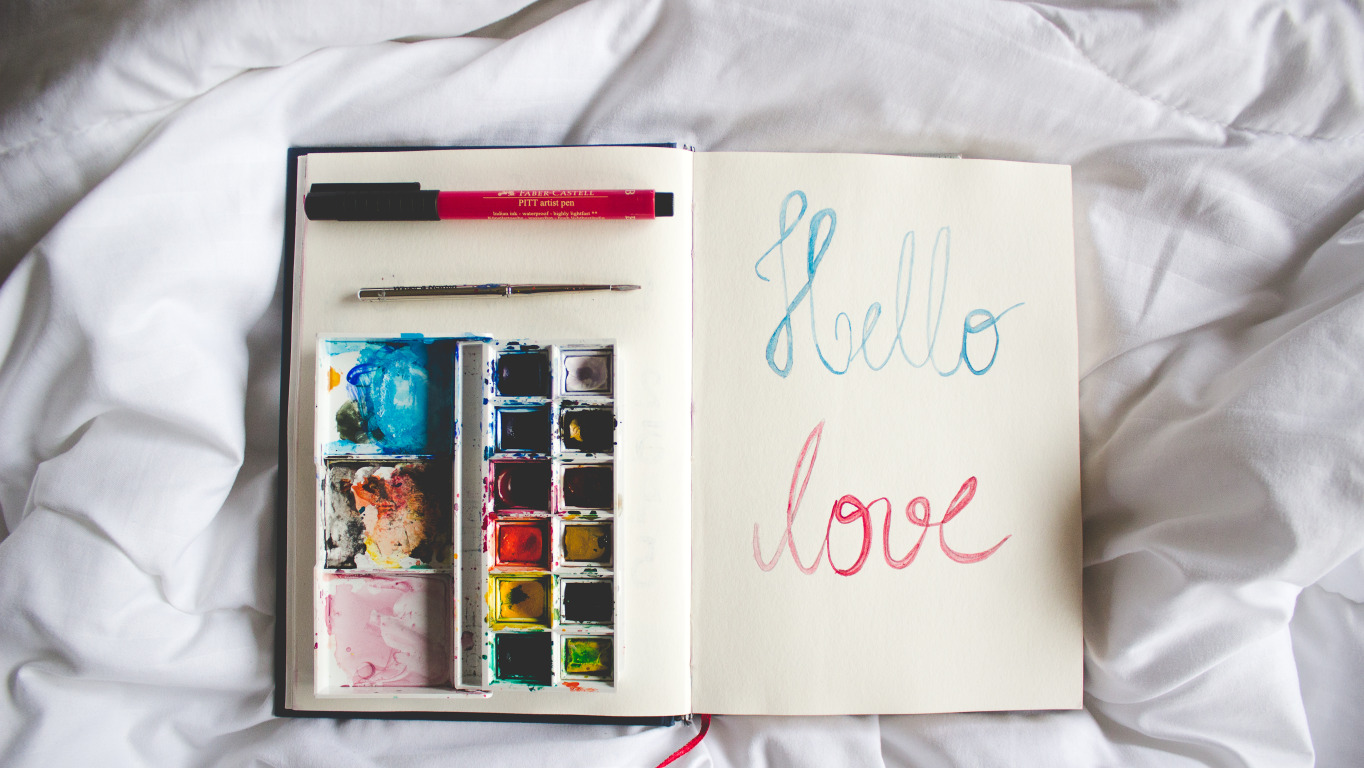 FABER-CASTELL
PITT artist pen
Indian ink - waterproof - highly lightfast **
B
Hello
love